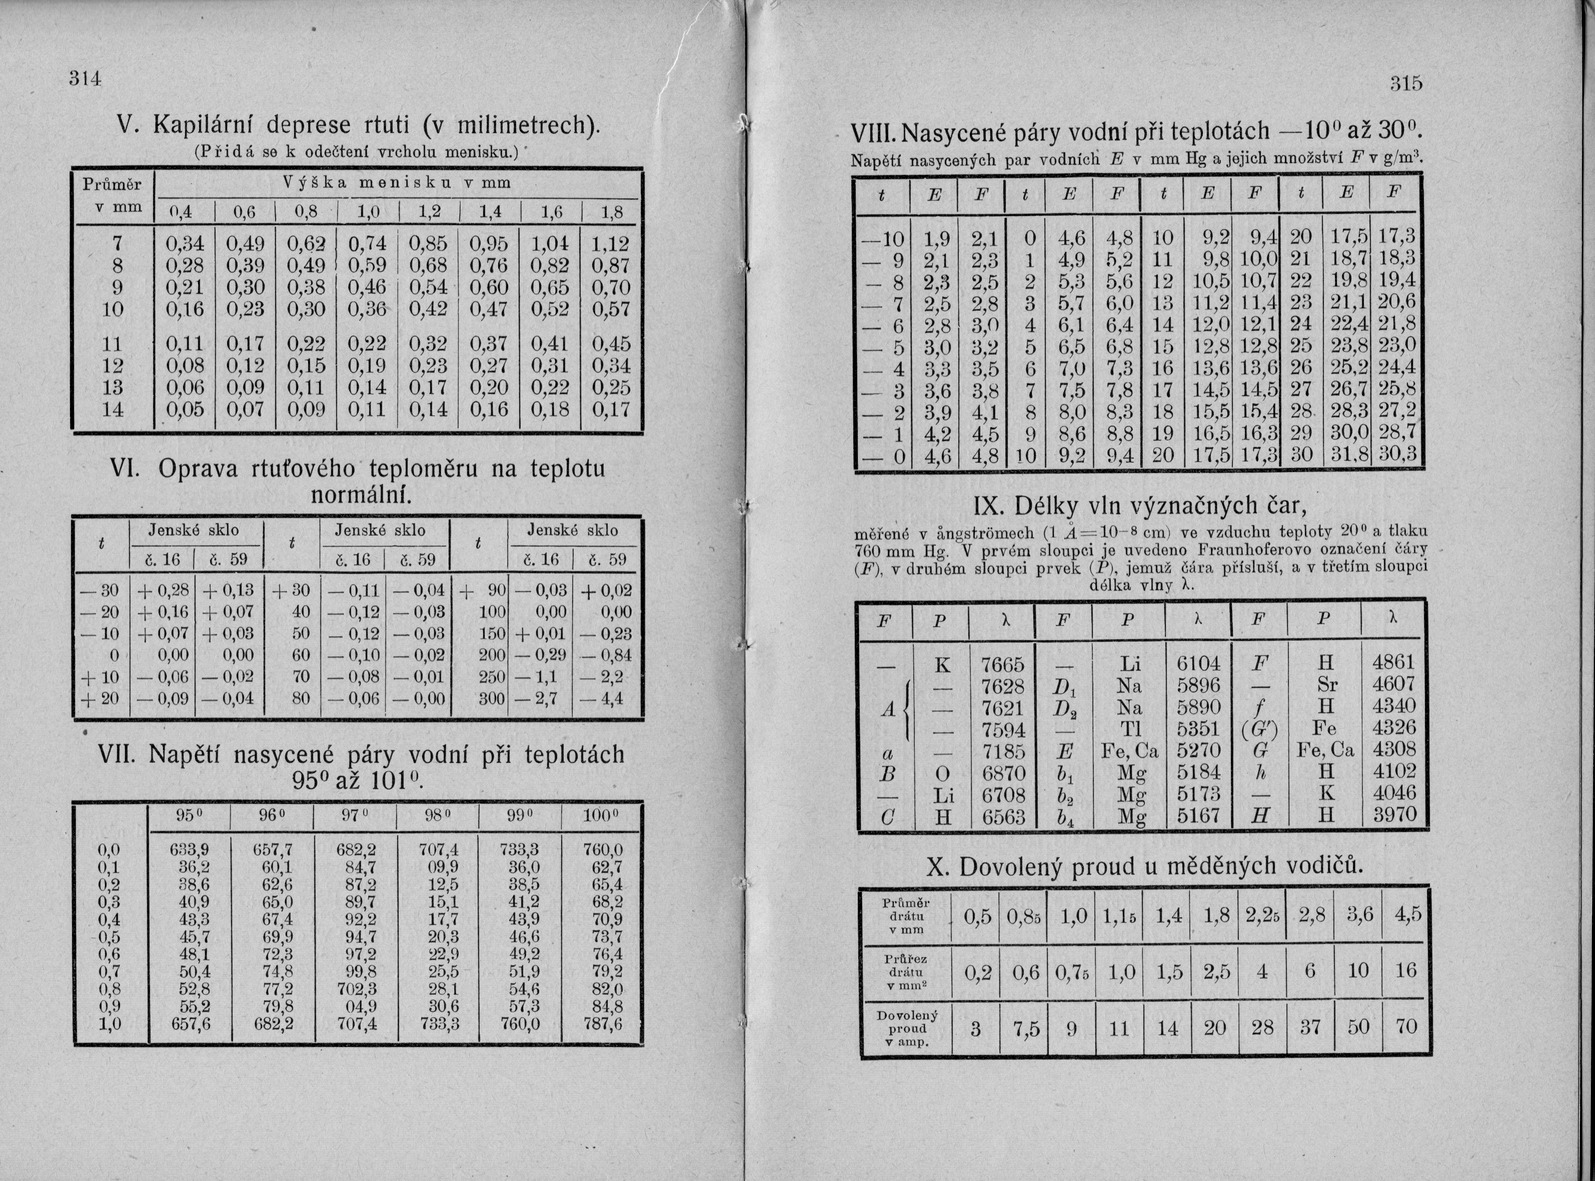 314
V. Kapilární deprese rtuti (v milimetrech).
(Přidá se k odečtení vrcholu menisku.)
Průměr v mm | Výška menisku v mm
0,4 | 0,6 | 0,8 | 1,0 | 1,2 | 1,4 | 1,6 | 1,8
7 0,34 0,49 0,62 0,74 0,85 0,95 1,04 1,12
8 0,28 0,39 0,49 0,59 0,68 0,76 0,82 0,87
9 0,21 0,30 0,38 0,46 0,54 0,60 0,65 0,70
10 0,16 0,23 0,30 0,36 0,42 0,47 0,52 0,57
11 0,11 0,17 0,22 0,22 0,32 0,37 0,41 0,45
12 0,08 0,12 0,15 0,19 0,23 0,27 0,31 0,34
13 0,06 0,09 0,11 0,14 0,17 0,20 0,22 0,25
14 0,05 0,07 0,09 0,11 0,14 0,16 0,18 0,17
VI. Oprava rtuťového teploměru na teplotu
normální.
t | Jenské sklo | t | Jenské sklo | t | Jenské sklo
č. 16 | č. 59 | č. 16 | č. 59 | č. 16 | č. 59
— 30 + 0,28 + 0,13 + 30 — 0,11 — 0,04 + 90 — 0,03 + 0,02
— 20 + 0,16 + 0,07 40 — 0,12 — 0,03 100 0,00 0,00
— 10 + 0,07 + 0,03 50 — 0,12 — 0,03 150 + 0,01 — 0,23
0 0,00 0,00 60 — 0,10 — 0,02 200 — 0,29 — 0,84
+ 10 — 0,06 — 0,02 70 — 0,08 — 0,01 250 — 1,1 — 2,2
+ 20 — 0,09 — 0,04 80 — 0,06 — 0,00 300 — 2,7 — 4,4
VII. Napětí nasycené páry vodní při teplotách
95⁰ až 101⁰.
95⁰ | 96⁰ | 97⁰ | 98⁰ | 99⁰ | 100⁰
0,0 633,9 657,7 682,2 707,4 733,3 760,0
0,1 36,2 60,1 84,7 09,9 36,0 62,7
0,2 38,6 62,6 87,2 12,5 38,5 65,4
0,3 40,9 65,0 89,7 15,1 41,2 68,2
0,4 43,3 67,4 92,2 17,7 43,9 70,9
0,5 45,7 69,9 94,7 20,3 46,6 73,7
0,6 48,1 72,3 97,2 22,9 49,2 76,4
0,7 50,4 74,8 99,8 25,5 51,9 79,2
0,8 52,8 77,2 702,3 28,1 54,6 82,0
0,9 55,2 79,8 04,9 30,6 57,3 84,8
1,0 657,6 682,2 707,4 733,3 760,0 787,6
315
VIII. Nasycené páry vodní při teplotách —10⁰ až 30⁰.
Napětí nasycených par vodních E v mm Hg a jejich množství F v g/m³.
t | E | F | t | E | F | t | E | F | t | E | F
—10 1,9 2,1 0 4,6 4,8 10 9,2 9,4 20 17,5 17,3
— 9 2,1 2,3 1 4,9 5,2 11 9,8 10,0 21 18,7 18,3
— 8 2,3 2,5 2 5,3 5,6 12 10,5 10,7 22 19,8 19,4
— 7 2,5 2,8 3 5,7 6,0 13 11,2 11,4 23 21,1 20,6
— 6 2,8 3,0 4 6,1 6,4 14 12,0 12,1 24 22,4 21,8
— 5 3,0 3,2 5 6,5 6,8 15 12,8 12,8 25 23,8 23,0
— 4 3,3 3,5 6 7,0 7,3 16 13,6 13,6 26 25,2 24,4
— 3 3,6 3,8 7 7,5 7,8 17 14,5 14,5 27 26,7 25,8
— 2 3,9 4,1 8 8,0 8,3 18 15,5 15,4 28 28,3 27,2
— 1 4,2 4,5 9 8,6 8,8 19 16,5 16,3 29 30,0 28,7
— 0 4,6 4,8 10 9,2 9,4 20 17,5 17,3 30 31,8 30,3
IX. Délky vln význačných čar,
měřené v ångströmech (1 Å = 10–⁸ cm) ve vzduchu teploty 20⁰ a tlaku
760 mm Hg. V prvém sloupci je uvedeno Fraunhoferovo označení čáry
(F), v druhém sloupci prvek (P), jemuž čára přísluší, a v třetím sloupci
délka vlny λ.
F | P | λ | F | P | λ | F | P | λ
— K 7665 — Li 6104 F H 4861
— 7628 D₁ Na 5896 — Sr 4607
A { — 7621 D₂ Na 5890 f H 4340
— 7594 — Tl 5351 (G') Fe 4326
a — 7185 E Fe, Ca 5270 G Fe, Ca 4308
B O 6870 b₁ Mg 5184 h H 4102
— Li 6708 b₂ Mg 5173 — K 4046
C H 6563 b₄ Mg 5167 H H 3970
X. Dovolený proud u měděných vodičů.
Průměr drátu v mm | 0,5 | 0,85 | 1,0 | 1,15 | 1,4 | 1,8 | 2,25 | 2,8 | 3,6 | 4,5
Průřez drátu v mm² | 0,2 | 0,6 | 0,75 | 1,0 | 1,5 | 2,5 | 4 | 6 | 10 | 16
Dovolený proud v amp. | 3 | 7,5 | 9 | 11 | 14 | 20 | 28 | 37 | 50 | 70